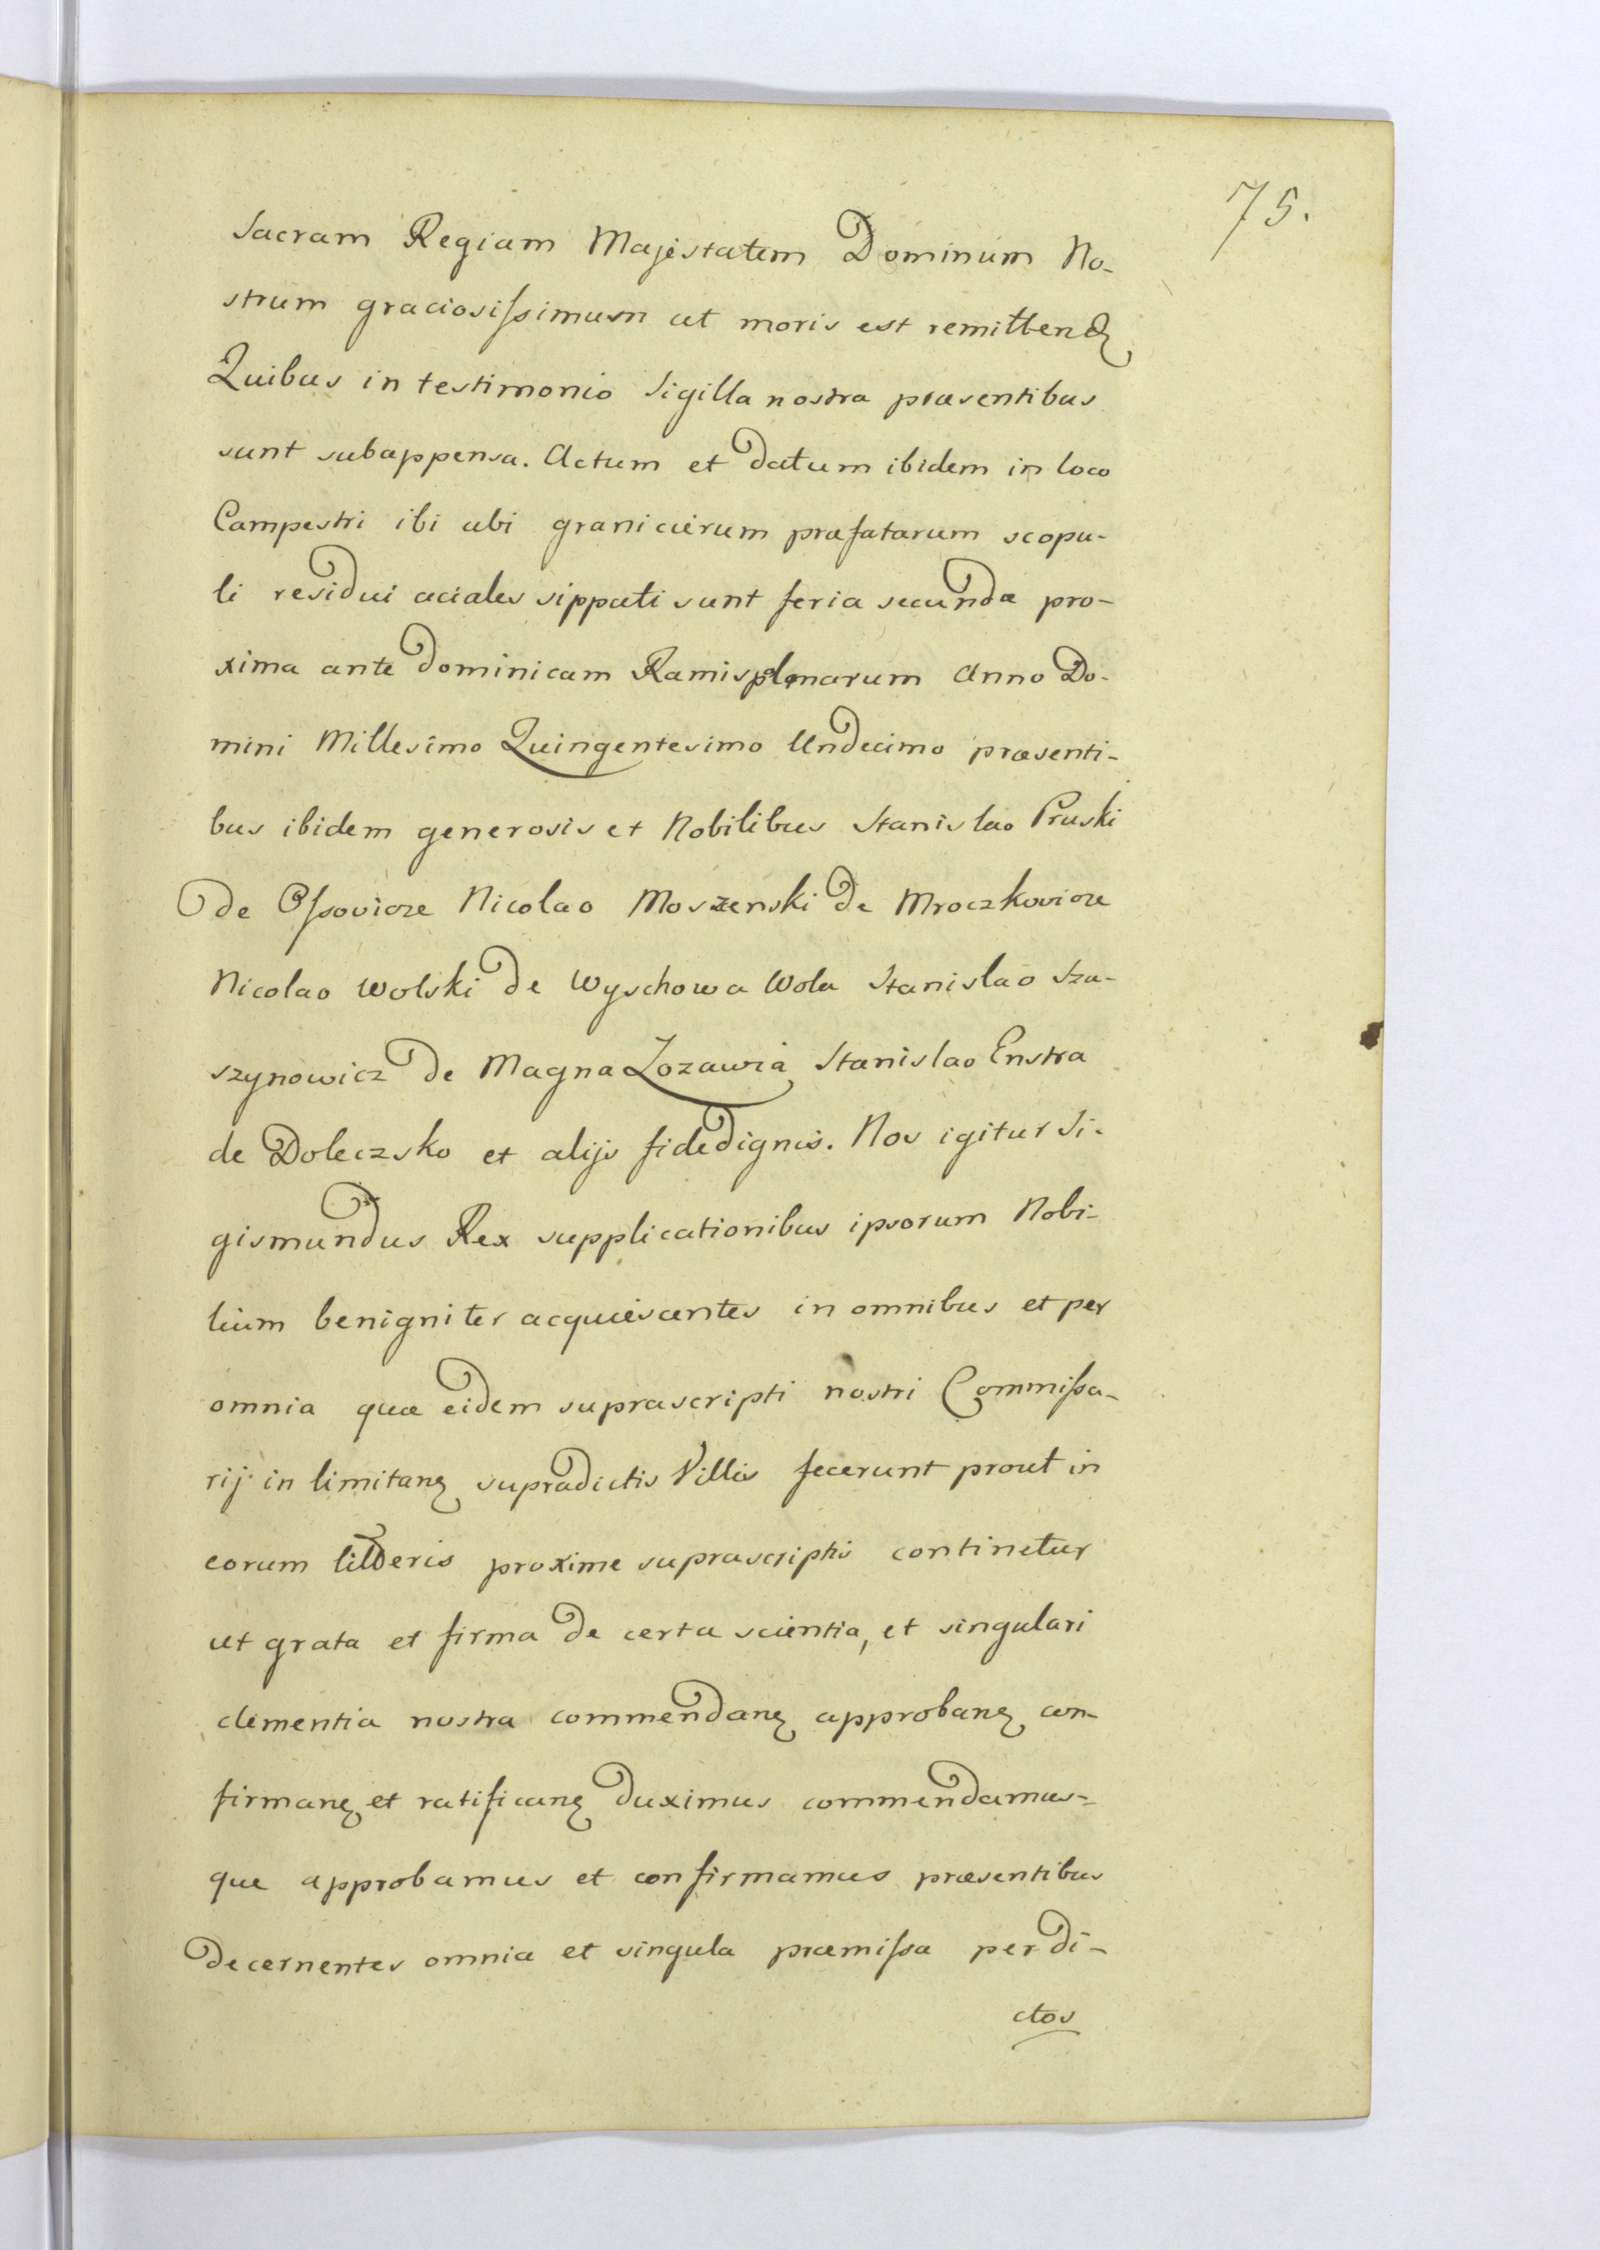 75.
Sacram Regiam Majestatem Dominum No-
strum graciosissimum ut moris est remittend
Quibus in testimonio Sigilla nostra præsentibus
sunt subappensa. Actum et datum ibidem in loco
Campestri ibi ubi granicierum præfatarum scopu-
li residui aciales sippati sunt feria secunda pro-
xima ante Dominicam Ramisplmarum Anno Do-
mini Millesimo Quingentesimo Undecimo præsenti-
bus ibidem generosis et Nobilibus Stanislao Pruski
de Ossovicze Nicolao Moszenski de Mroczkovicze
Nicolao Wolski de Wyschowa Wola Stanislao Sza-
szynowicz de Magna Lozawia Stanislao Enstra
de Doleczsko et alijs fidedignis. Nos igitur Si-
gismundus Rex supplicationibus ipsorum Nobi-
lium benigniter acquiescentes in omnibus et per
omnia quæ eidem suprascripti nostri Commissa-
rij in limitan supradictis Villis fecerunt prout in
eorum litteris proxime suprascriptis continetur
ut grata et firma de certa scientia, et singulari
clementia nostra commendan approban con-
firman et ratifican duximus commendamus-
que approbamus et confirmamus præsentibus
Decernentes omnia et singula præmissa per di-
ctos